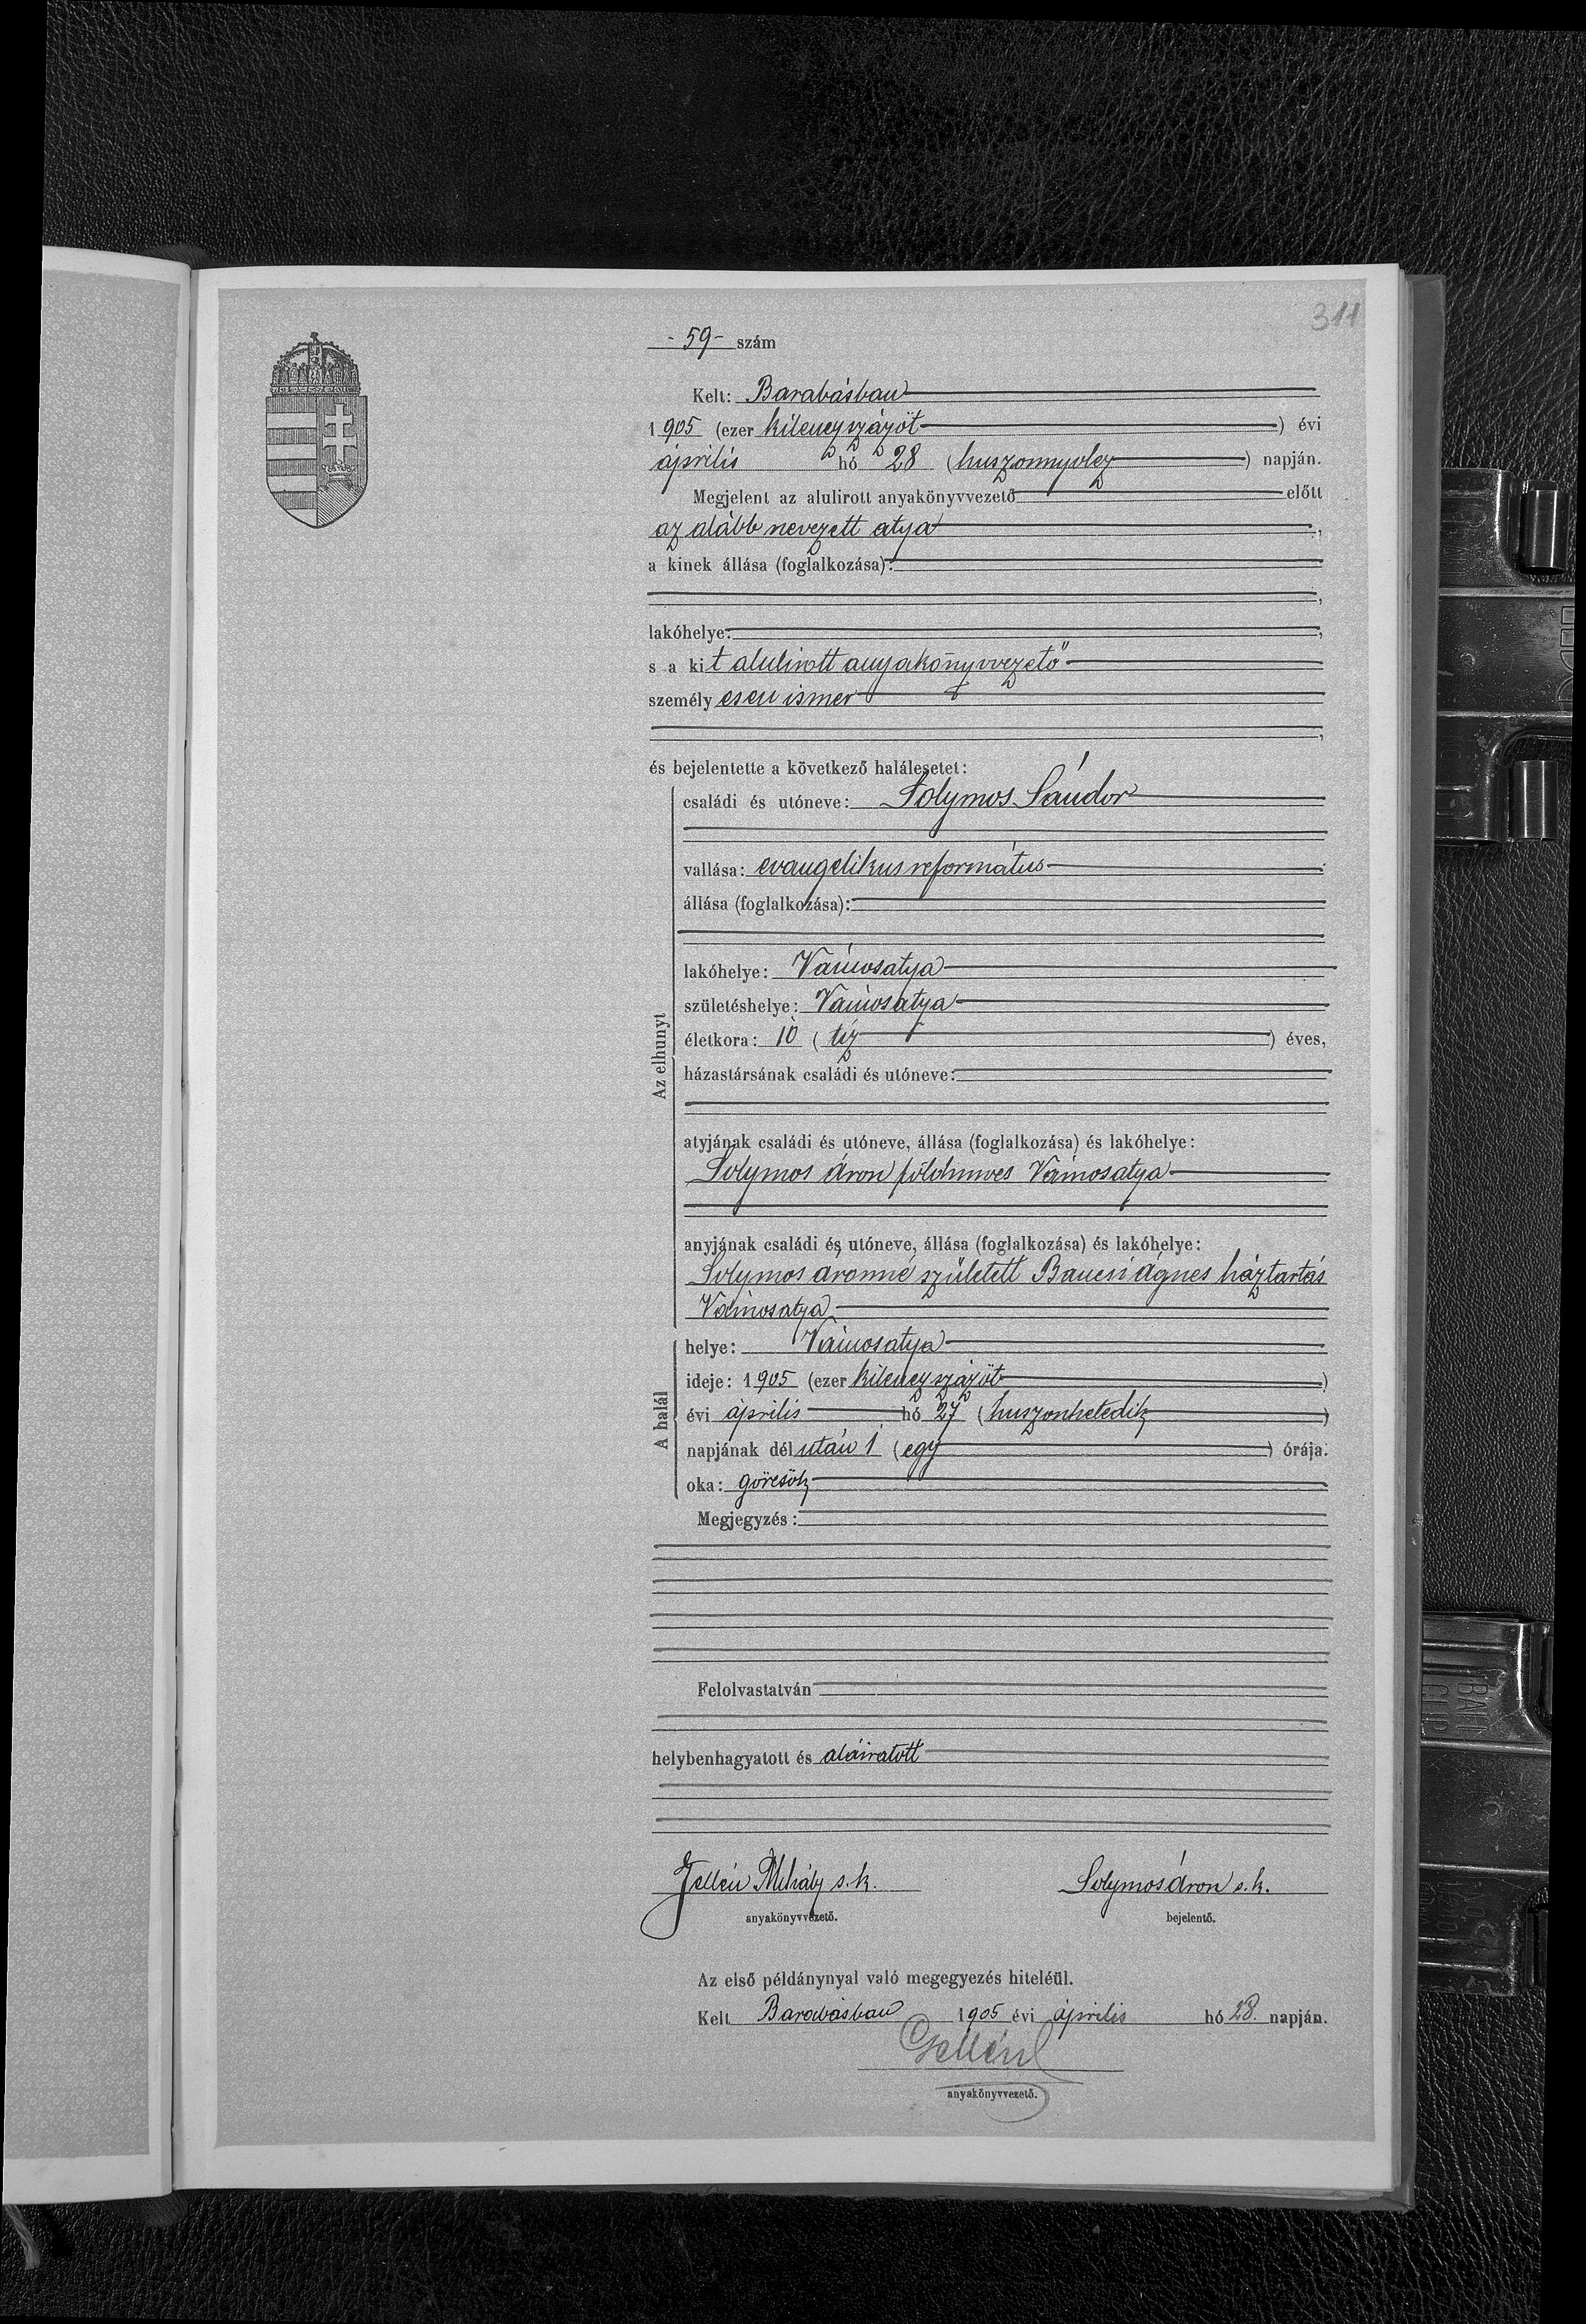 311
- 59 - szám
Kelt: Barabásban
1905 (ezer kilenczszázöt) évi
április hó 28 (huszonnyolcz) napján.
Megjelent az alulirott anyakönyvvezető előtt
az alább nevezett atya,
a kinek állása (foglalkozása):
lakóhelye:
s a kit alulirott anyakönyvvezető
személyesen ismer
és bejelentette a következő halálesetet:
Az elhunyt
családi és utóneve: Solymos Sándor
vallása: evangelikus református
állása (foglalkozása):
lakóhelye: Vámosatya
születéshelye: Vámosatya
életkora: 10 (tíz) éves,
házastársának családi és utóneve:
atyjának családi és utóneve, állása (foglalkozása) és lakóhelye:
Solymos Áron földmives Vámosatya
anyjának családi és utóneve, állása (foglalkozása) és lakóhelye:
Solymos Áronné született Bancsi Ágnes háztartás
Vámosatya
A halál
helye: Vámosatya
ideje: 1905 (ezer kilenczszázöt)
évi április hó 27 (huszonhetedik)
napjának délután 1 (egy) órája.
oka: görcsök
Megjegyzés:
Felolvastatván
helybenhagyatott és aláiratott
Gellén Mihály s.k. Solymos Áron s.k.
anyakönyvvezető. bejelentő.
Az első példánynyal való megegyezés hiteléül.
Kelt Barabásban 1905 évi április hó 28. napján.
Gellén
anyakönyvvezető.